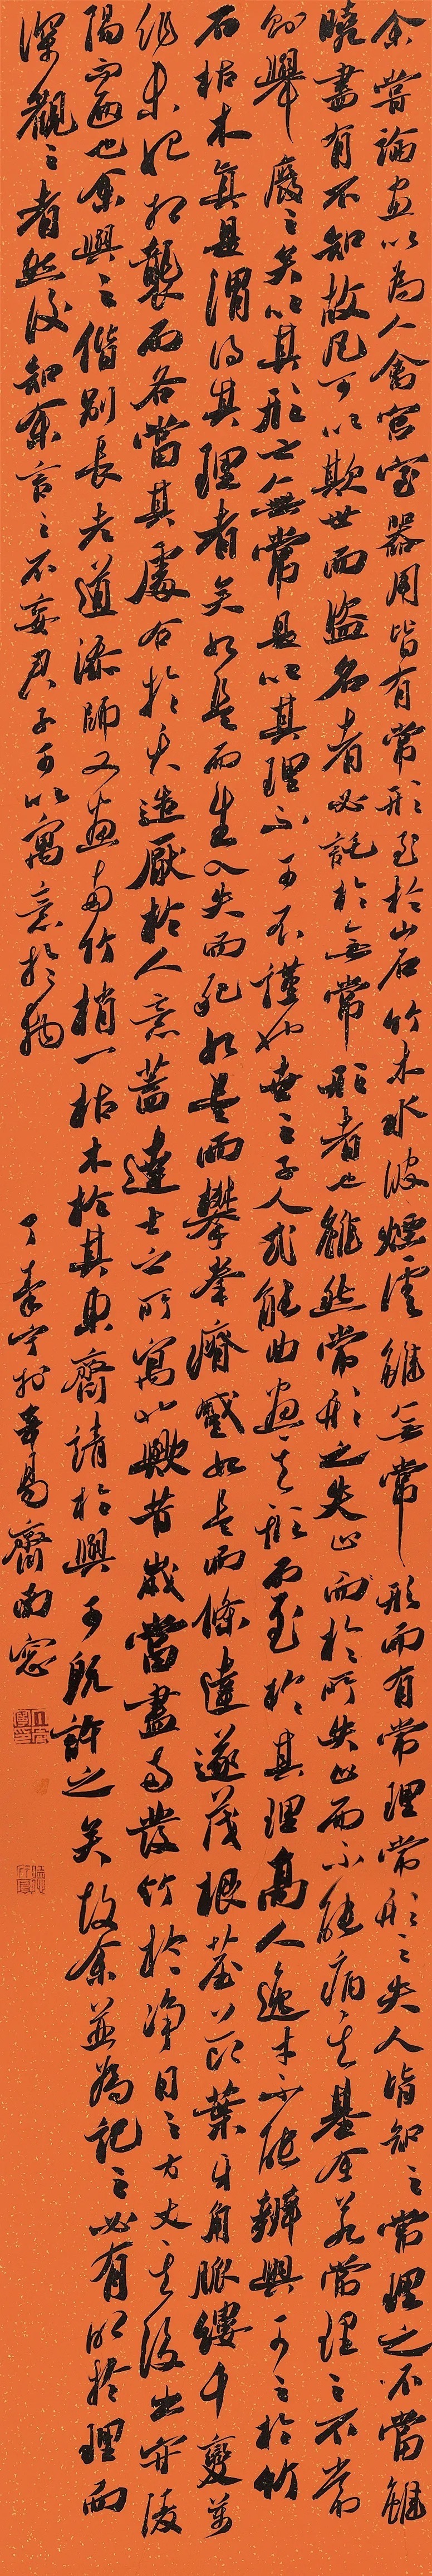 余嘗論畫以為人禽宮室器用皆有常形至於山石竹木水波煙雲雖無常形而有常理常形之失人皆知之常理之不當雖
曉畫有不知故凡可以欺世而盜名者必託於無常形者也雖然常形之失止而於所失止而不能病其基全若常理之不當
則舉廢之矣以其形之無常是以其理不可不謹也世之工人或能曲盡其形而至於其理高人逸才不能辨與可之於竹
石枯木真是謂得其理者矣如是而生如是而死如是而攣拳瘠蹙如是而條達遂茂根莖節葉牙角脈縷千變萬
化未始相襲而各當其處合於天造厭於人意蓋達士之所寓也歟昔歲嘗畫兩叢竹於淨因之方丈其後出守陵
陽而西也余與之偕別長老道臻師又畫兩竹梢一枯木於其東齋請於與可既許之矣故余並為記之必有明於理而
深觀之者然後知余言之不妄君子可以寓意於物
易齋南窗